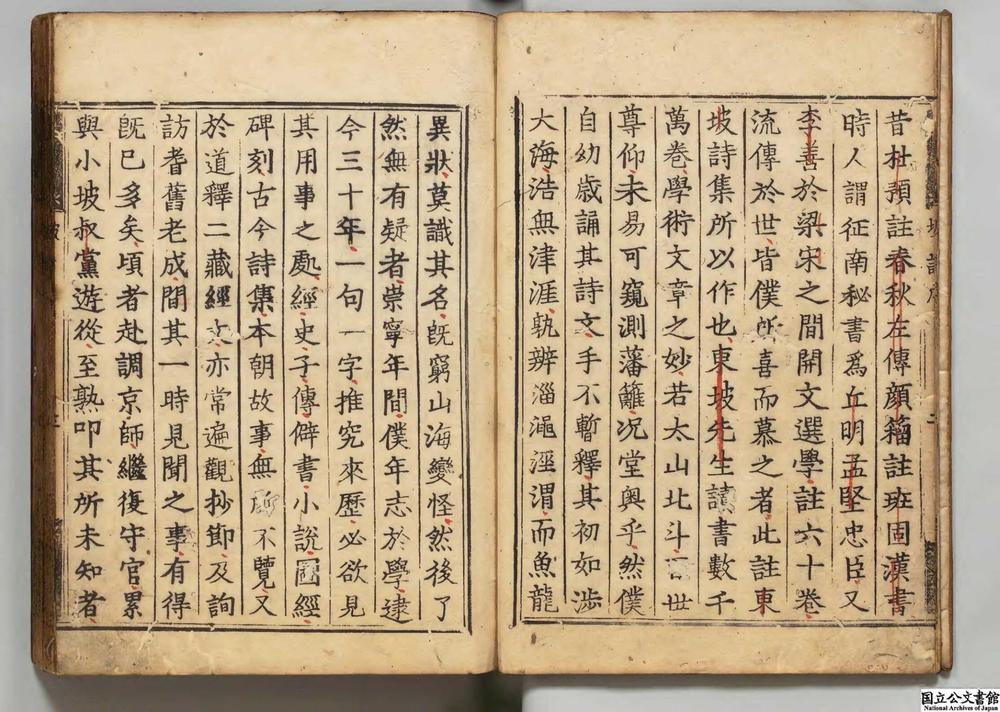 昔杜預註春秋左傳顔籀註班固漢書
時人謂征南秘書爲丘明孟堅忠臣又
李善於梁宋之間開文選學註六十卷
流傳於世皆僕所喜而慕之者此註東
坡詩集所以作也東坡先生讀書數千
萬卷學術文章之妙若太山北斗百世
尊仰未易可窺測藩籬况堂奥乎然僕
自幼歳誦其詩文手不暫釋其初如涉
大海浩無津涯孰辨淄澠涇渭而魚龍
異狀莫識其名旣窮山海變怪然後了
然無有疑者崇寧年間僕年志於學逮
今三十年一句一字推究來歷必欲見
其用事之處經史子傳僻書小說圖經
碑刻古今詩集本朝故事無所不覽又
於道釋二藏經文亦常遍觀抄節及詢
訪耆舊老成間其一時見聞之事有得
旣已多矣頃者赴調京師繼復守官累
與小坡叔黨遊從至熟叩其所未知者
坡詩序
二
国立公文書館
National Archives of Japan